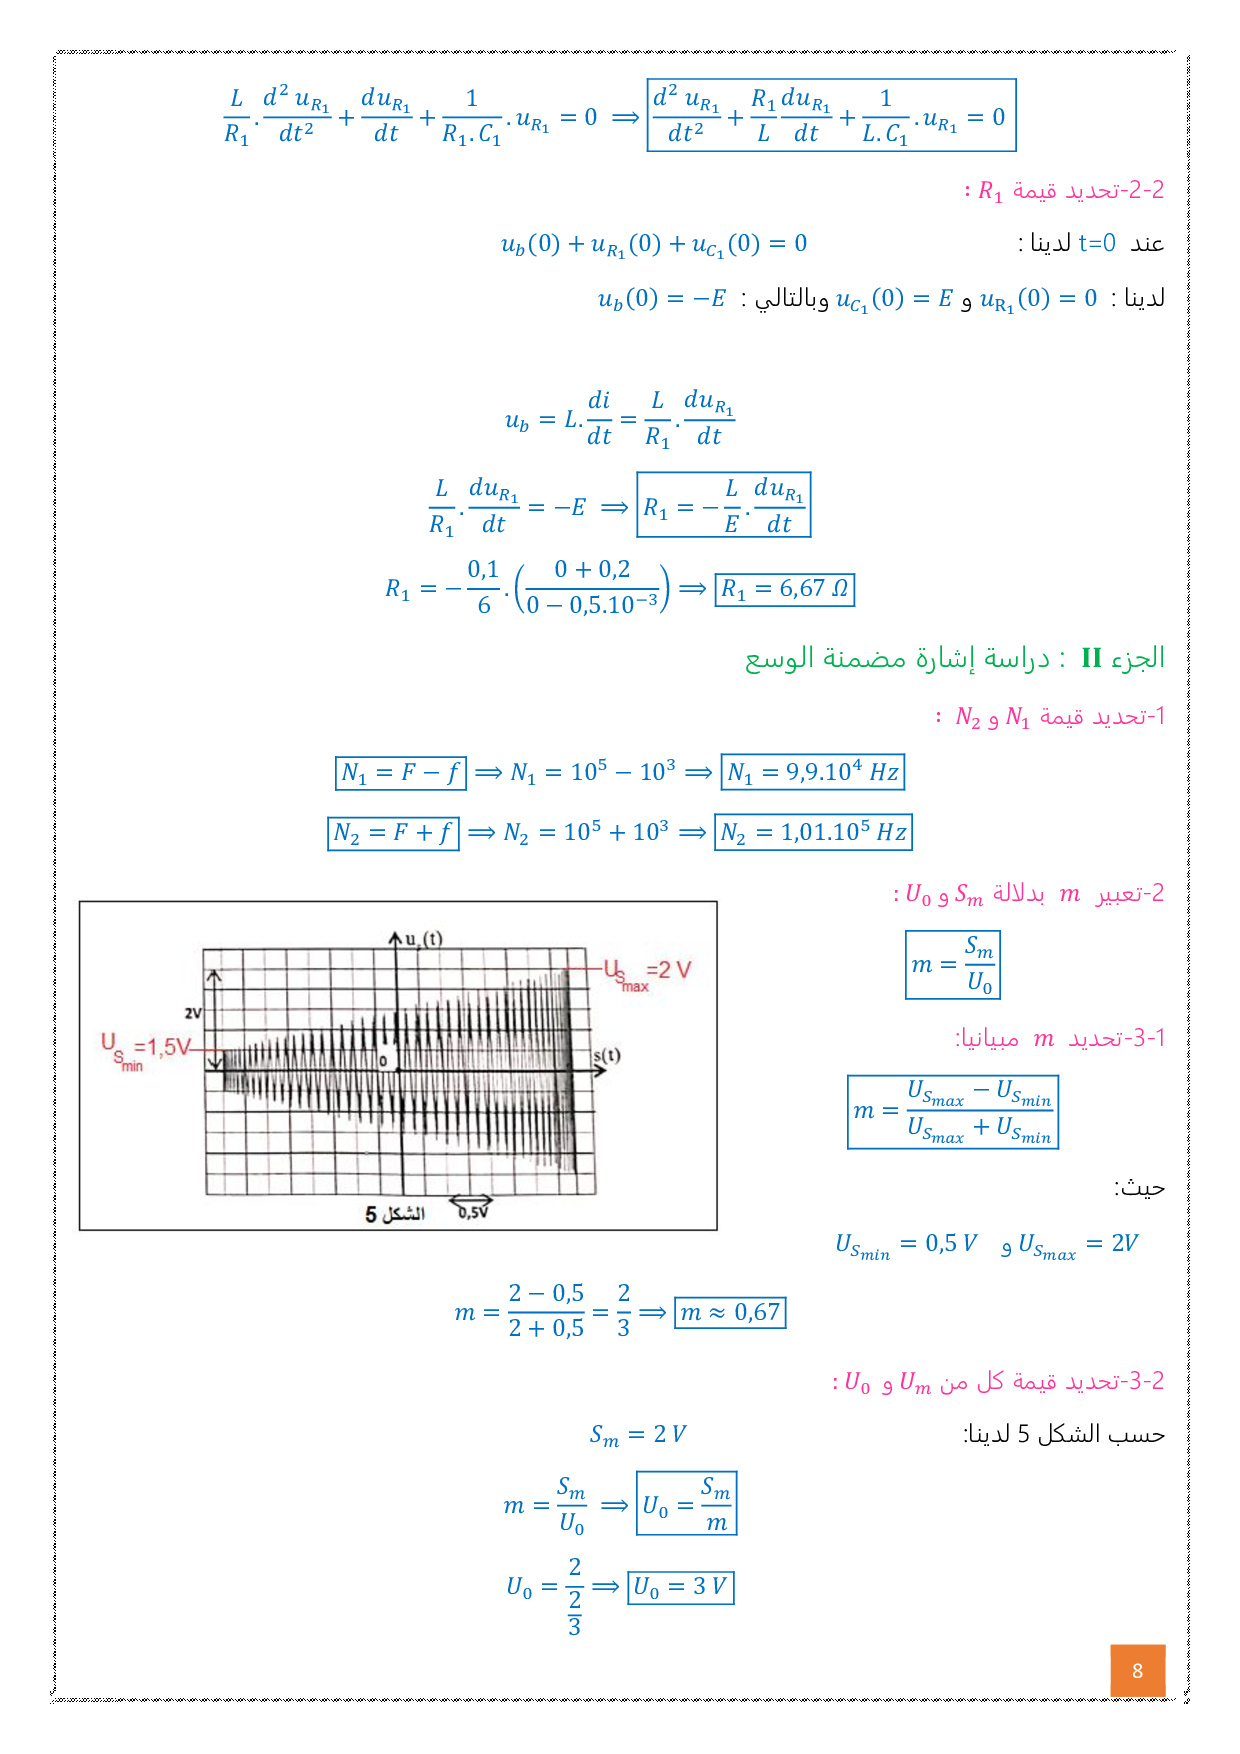 $\frac{L}{R_1}.\frac{d^2 u_{R_1}}{dt^2}+\frac{du_{R_1}}{dt}+\frac{1}{R_1.C_1}.u_{R_1}=0 \Longrightarrow \frac{d^2 u_{R_1}}{dt^2}+\frac{R_1}{L}\frac{du_{R_1}}{dt}+\frac{1}{L.C_1}.u_{R_1}=0$
2-2-تحديد قيمة $R_1$ :
عند t=0 لدينا : $u_b(0)+u_{R_1}(0)+u_{C_1}(0)=0$
لدينا : $u_{R_1}(0)=0$ و $u_{C_1}(0)=E$ وبالتالي : $u_b(0)=-E$
$u_b=L.\frac{di}{dt}=\frac{L}{R_1}.\frac{du_{R_1}}{dt}$
$\frac{L}{R_1}.\frac{du_{R_1}}{dt}=-E \Longrightarrow R_1=-\frac{L}{E}.\frac{du_{R_1}}{dt}$
$R_1=-\frac{0,1}{6}.\left(\frac{0+0,2}{0-0,5.10^{-3}}\right) \Longrightarrow R_1=6,67\ \Omega$
الجزء II : دراسة إشارة مضمنة الوسع
1-تحديد قيمة $N_1$ و $N_2$ :
$N_1=F-f \Longrightarrow N_1=10^5-10^3 \Longrightarrow N_1=9,9.10^4\ Hz$
$N_2=F+f \Longrightarrow N_2=10^5+10^3 \Longrightarrow N_2=1,01.10^5\ Hz$
2-تعبير $m$ بدلالة $S_m$ و $U_0$ :
$m=\frac{S_m}{U_0}$
3-1-تحديد $m$ مبيانيا:
$m=\frac{U_{S_{max}}-U_{S_{min}}}{U_{S_{max}}+U_{S_{min}}}$
حيث:
$U_{S_{max}}=2V$ و $U_{S_{min}}=0,5\ V$
$u_s(t)$
$U_{S_{max}}$=2 V
2V
$U_{S_{min}}$=1,5V
0
s(t)
0,5V
الشكل 5
$m=\frac{2-0,5}{2+0,5}=\frac{2}{3} \Longrightarrow m\approx 0,67$
3-2-تحديد قيمة كل من $U_m$ و $U_0$ :
حسب الشكل 5 لدينا: $S_m=2\ V$
$m=\frac{S_m}{U_0} \Longrightarrow U_0=\frac{S_m}{m}$
$U_0=\frac{2}{\frac{2}{3}} \Longrightarrow U_0=3\ V$
8